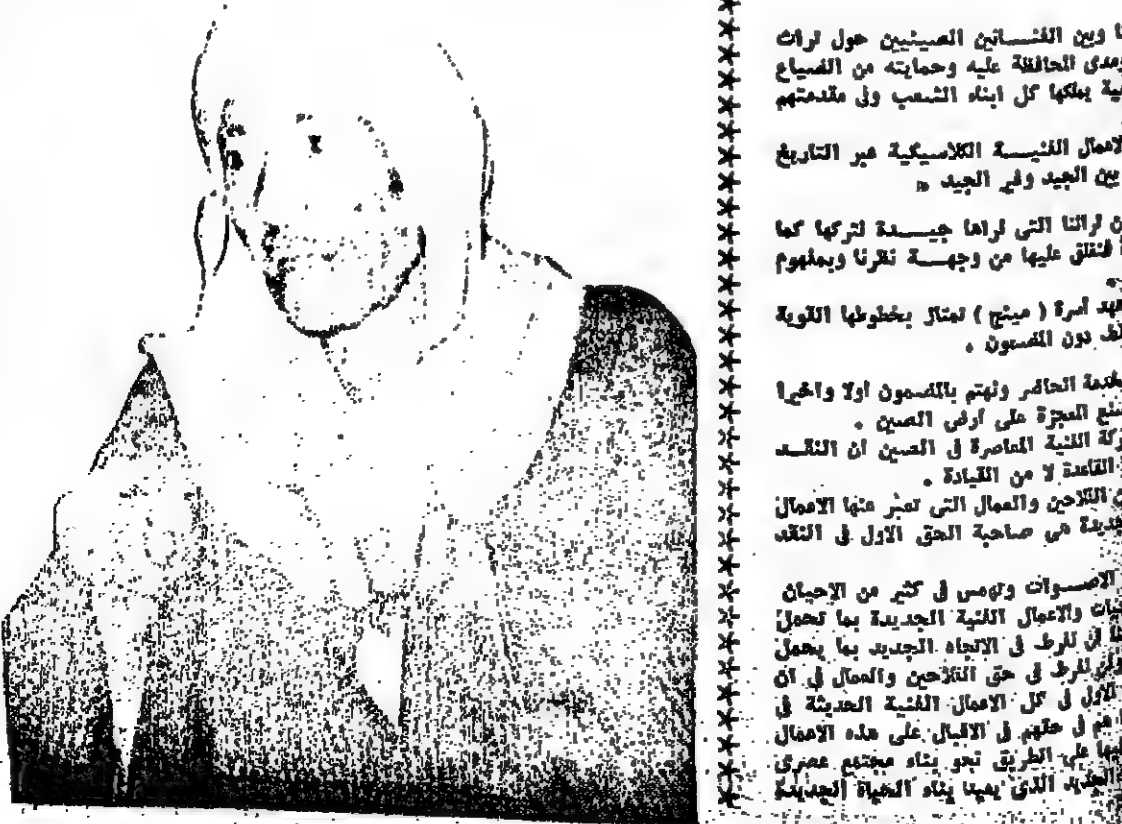 نا وبين الفنـــانين الصينيين حول تراث
ومدى المحافظة عليه وحمايته من الضياع
ية يملكها كل ابناء الشعب وفى مقدمتهم
لاعمال الفنيـــة الكلاسيكية عبر التاريخ
بين الجيد وغير الجيد »
ن تراثنا التى نراها جيـــدة نتركها كما
عليها من وجهـــة نظرنا وبمفهوم
عهد أسرة ( مينج ) تمتاز بخطوطها القوية
دون المضمون .
بخدمة الحاضر ونهتم بالمضمون اولا واخيرا
المعجزة على ارض الصين .
ركة الفنية المعاصرة فى الصين ان النقـــد
القاعدة لا من القيادة .
ن الفلاحين والعمال التى تعبر عنها الاعمال
جديدة هى صاحبة الحق الاول فى النقد
الاصـــوات وتهمس فى كثير من الاحيان
والاعمال الفنية الجديدة بما تحمل
ان نفرط فى الاتجاه الجديد بما يحمل
نفرط فى حق الفلاحين والعمال فى ان
الاول فى كل الاعمال الفنية الحديثة فى
هم فى حقهم فى الاقبال على هذه الاعمال
على الطريق نحو بناء مجتمع عصرى
الجديد الذى يهمنا بناء الحياة الجديدة